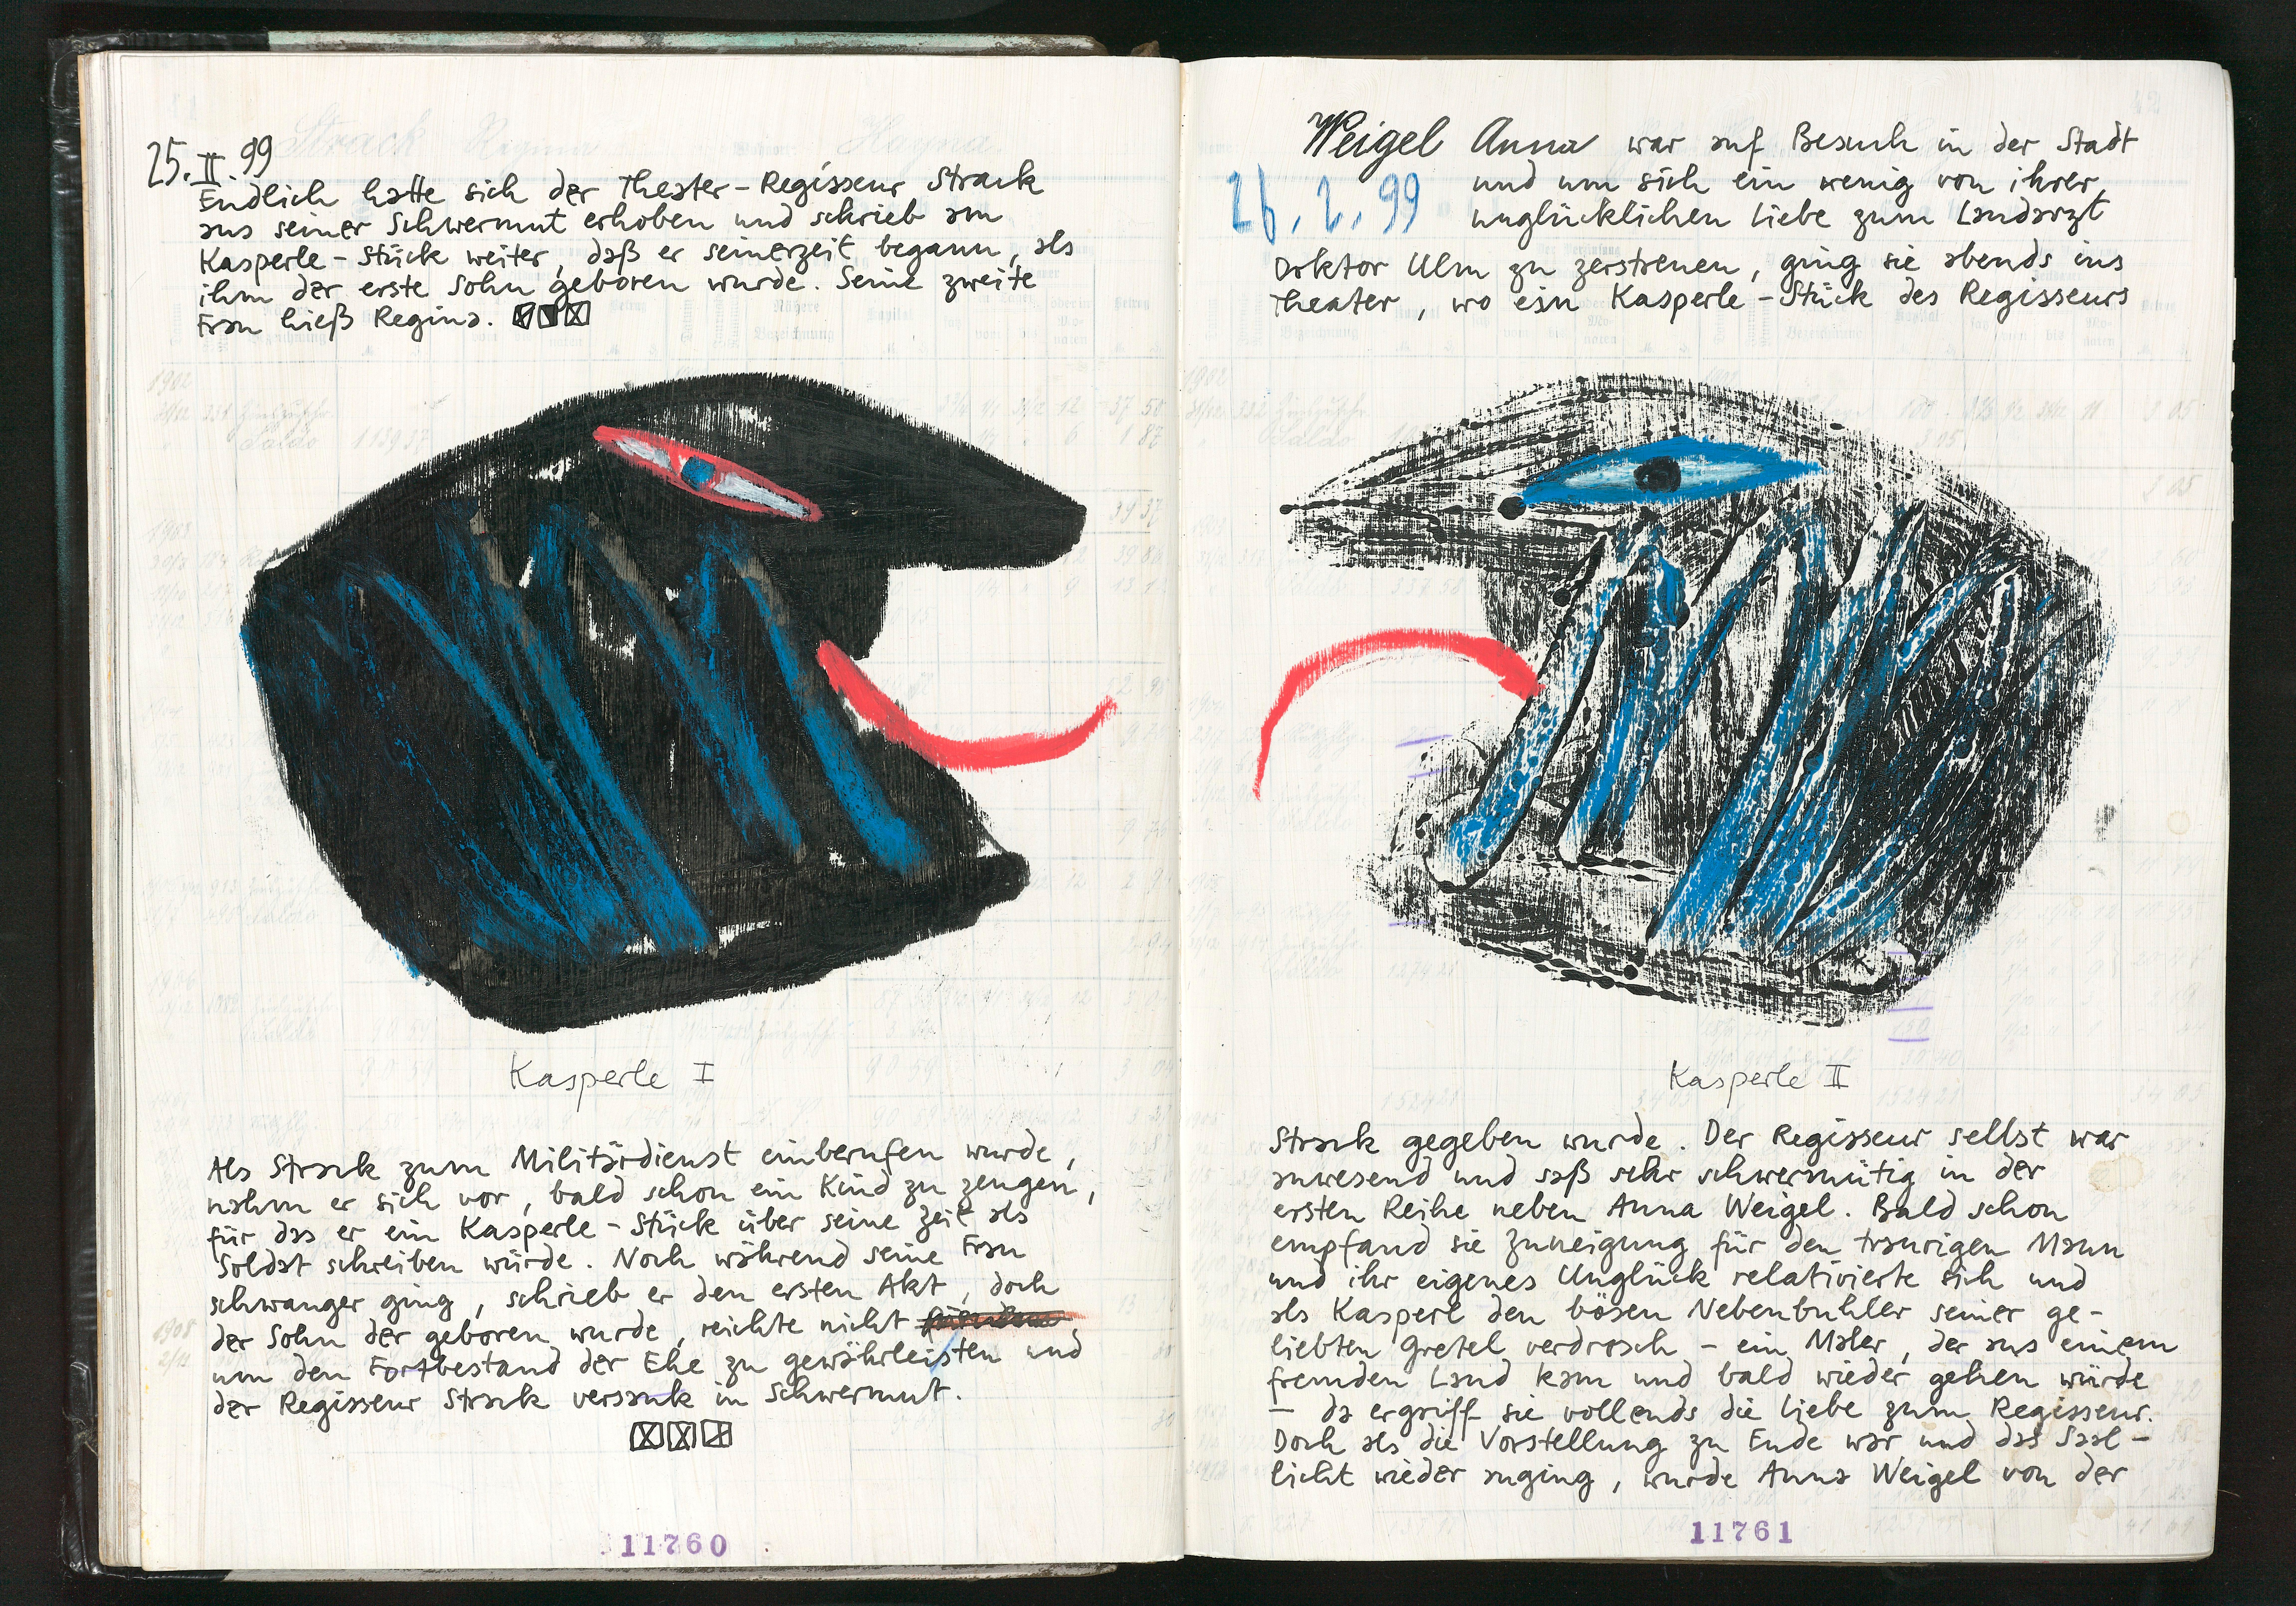 Strack Regina Hayna
25.II.99
Endlich hatte sich der Theater-Regisseur Strack
aus seiner Schwermut erhoben und schrieb am
Kasperle-Stück weiter, daß er seinerzeit begann, als
ihm der erste Sohn geboren wurde. Seine zweite
Frau hieß Regina.
Kasperle I
Als Strack zum Militärdienst einberufen wurde,
nahm er sich vor, bald schon ein Kind zu zeugen,
für das er ein Kasperle-Stück über seine Zeit als
Soldat schreiben würde. Noch während seine Frau
schwanger ging, schrieb er den ersten Akt, doch
der Sohn der geboren wurde, reichte nicht
um den Fortbestand der Ehe zu gewährleisten und
der Regisseur Strack versank in Schwermut.
11760
Weigel Anna war auf Besuch in der Stadt
26.2.99 und um sich ein wenig von ihrer
unglücklichen Liebe zum Landarzt
Doktor Ulm zu zerstreuen, ging sie abends ins
Theater, wo ein Kasperle-Stück des Regisseurs
Kasperle II
Strack gegeben wurde. Der Regisseur selbst war
anwesend und saß sehr schwermütig in der
ersten Reihe neben Anna Weigel. Bald schon
empfand sie Zuneigung für den traurigen Mann
und ihr eigenes Unglück relativierte sich und
als Kasperl den bösen Nebenbuhler seiner ge-
liebten Gretel verdrosch - ein Maler, der aus einem
fremden Land kam und bald wieder gehen würde
- da ergriff sie vollends die Liebe zum Regisseur.
Doch als die Vorstellung zu Ende war und das Saal-
licht wieder anging, wurde Anna Weigel von der
11761